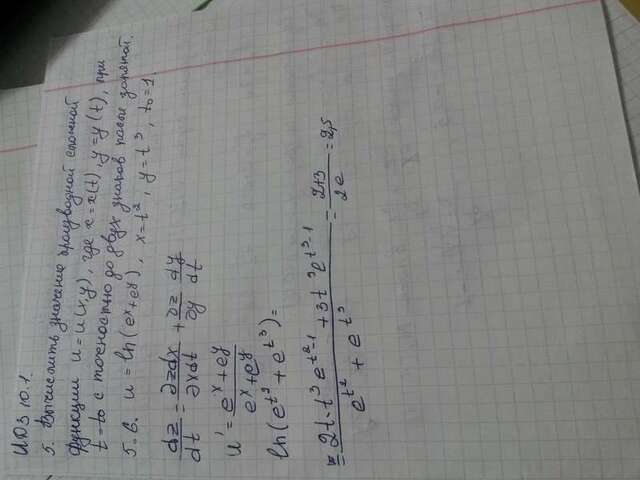 ИДЗ 10.1.
5. Вычислить значение производной сложной
функции u = u(x,y), где x = x(t), y = y(t), при
t = t₀ с точностью до двух знаков после запятой.
5.6. u = ln(eˣ + eʸ), x = t², y = t³, t₀ = 1.
dz/dt = ∂z dx/∂x dt + ∂z dy/∂y dt
u' = eˣ + eʸ / eˣ + eʸ
ln(e^t² + e^t³) =
= 2t · t³ e^t²-1 + 3t³ e^t³-1 / e^t² + e^t³ = 2+3 / 2e = 2,5